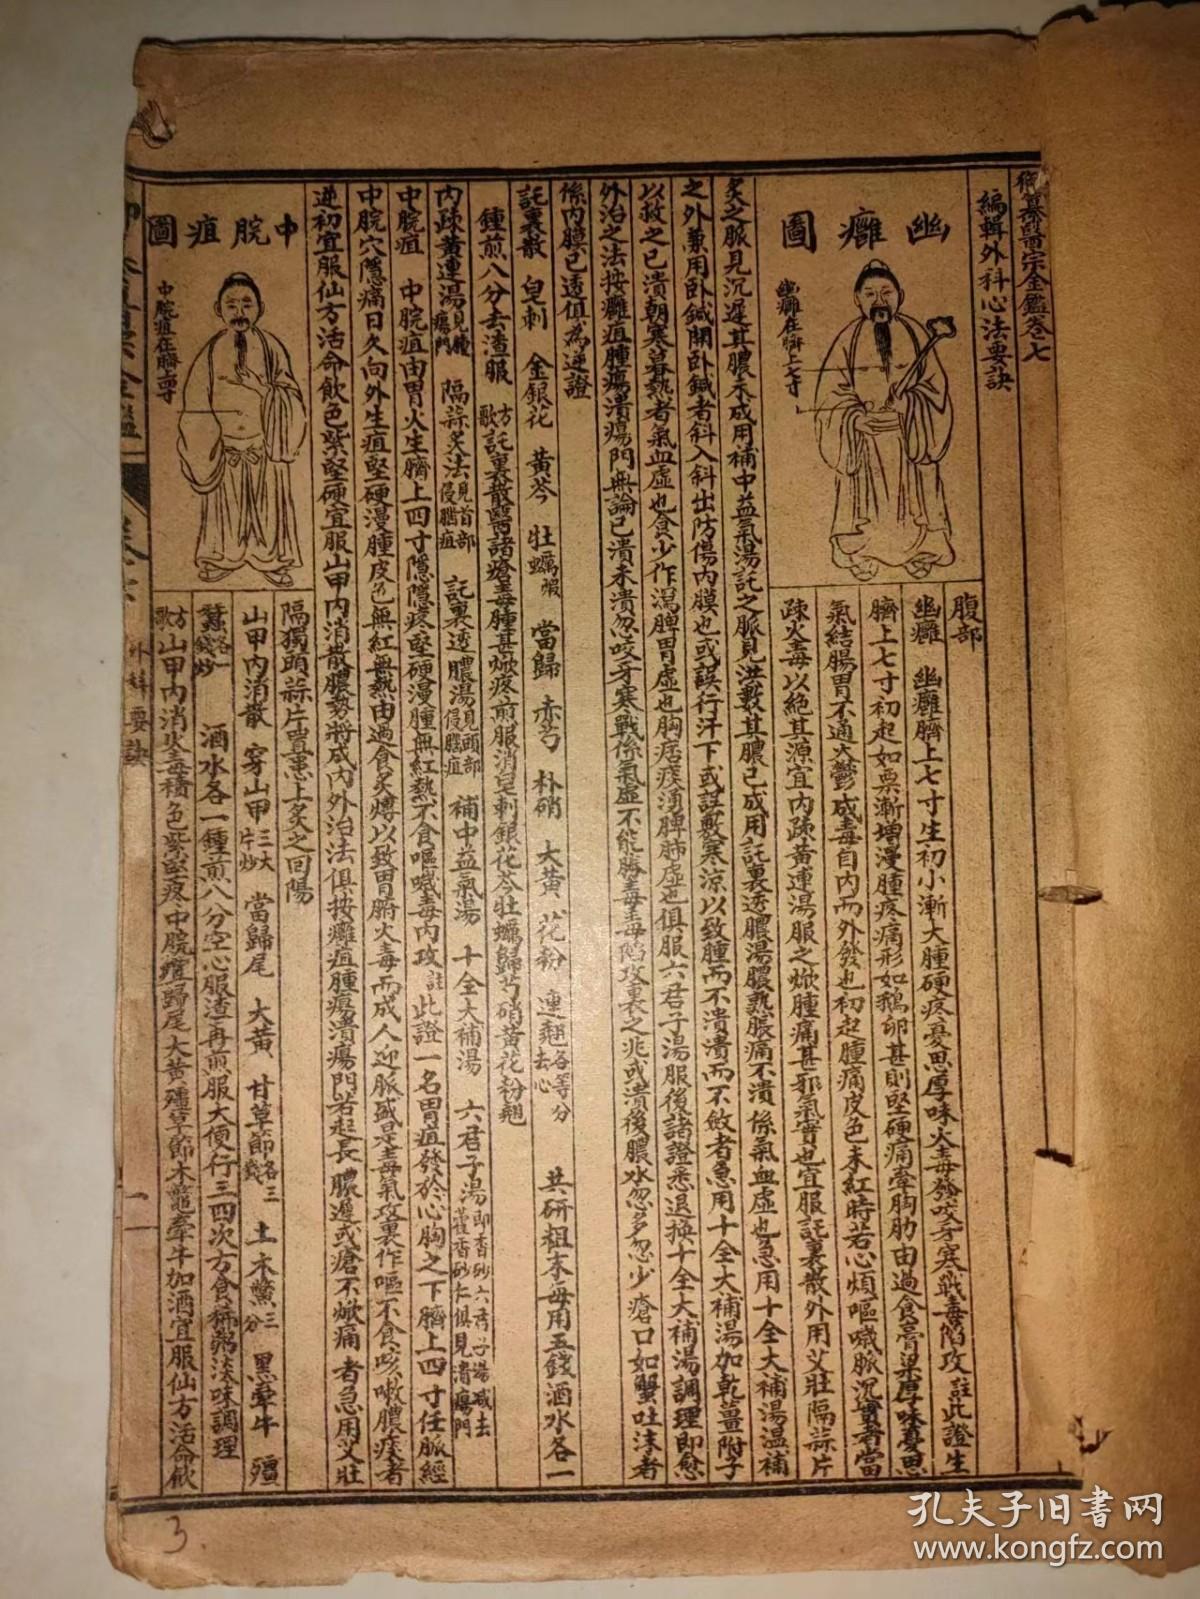 御纂醫宗金鑑卷七
編輯外科心法要訣
幽癰圖
幽癰在臍上七寸
腹部
幽癰　幽癰臍上七寸生初小漸大腫硬疼憂思厚味火毒發咬牙寒戰毒陷攻註此證生
臍上七寸初起如粟漸增漫腫疼痛形如鵝卵甚則堅硬痛牽胸肋由過食膏粱厚味憂思
氣結腸胃不通火鬱成毒自內而外發也初起腫痛皮色未紅時若心煩嘔噦脈沉實者當
疎火毒以絕其源宜內疎黃連湯服之焮腫痛甚邪氣實也宜服託裏散外用艾壯隔蒜片
炙之脈見沉遲其膿未成用補中益氣湯託之脈見洪數其膿已成用託裏透膿湯膿熟脹痛不潰係氣血虛也急用十全大補湯溫補
之外兼用臥鍼開臥鍼者斜入斜出防傷內膜也或誤行汗下或誤敷寒涼以致腫而不潰潰而不斂者急用十全大補湯加乾薑附子
以救之已潰朝寒暮熱者氣血虛也食少作瀉脾胃虛也胸痞痰湧脾肺虛也俱服六君子湯服後諸證悉退換十全大補湯調理即愈
外治之法按癰疽腫瘍潰瘍門無論已潰未潰忽咬牙寒戰係氣虛不能勝毒毒陷攻裏之兆或潰後膿水忽多忽少瘡口如蟹吐沫者
係內膜已透俱為逆證
託裏散　皂刺　金銀花　黃芩　牡蠣煅　當歸　赤芍　朴硝　大黃　花粉　連翹去心　各等分　共研粗末每用五錢酒水各一
鍾煎八分去渣服　方歌託裏散醫諸瘡毒腫甚焮疼煎服消皂刺銀花芩牡蠣歸芍硝黃花粉翹
內疎黃連湯見腫瘍門　隔蒜炙法見首部侵腦疽　託裏透膿湯見頭部侵腦疽　補中益氣湯　十全大補湯　六君子湯即香砂六君子湯減去藿香砂仁俱見潰瘍門
中脘疽　中脘疽由胃火生臍上四寸隱隱疼堅硬漫腫無紅熱不食嘔噦毒內攻註此證一名胃疽發於心胸之下臍上四寸任脈經
中脘穴隱痛日久向外生疽堅硬漫腫皮色無紅無熱由過食炙煿以致胃腑火毒而成人迎脈盛是毒氣攻裏作嘔不食咳嗽膿痰者
逆初宜服仙方活命飲色紫堅硬宜服山甲內消散膿勢將成內外治法俱按癰疽腫瘍潰瘍門若起長膿遲或瘡不焮痛者急用艾壯
中脘疽圖
中脘疽在臍上四寸
隔獨頭蒜片置患上炙之回陽
山甲內消散　穿山甲三大片炒　當歸尾　大黃　甘草節各三錢　土木鱉三個　黑牽牛　殭
蠶各一錢炒　酒水各一鍾煎八分空心服渣再煎服大便行三四次方食稀粥淡味調理
方歌山甲內消火毒積色紫堅疼中脘疽歸尾大黃殭草節木鱉牽牛加酒宜服仙方活命飲
外科要訣
一
3.
孔夫子旧书网
www.kongfz.com